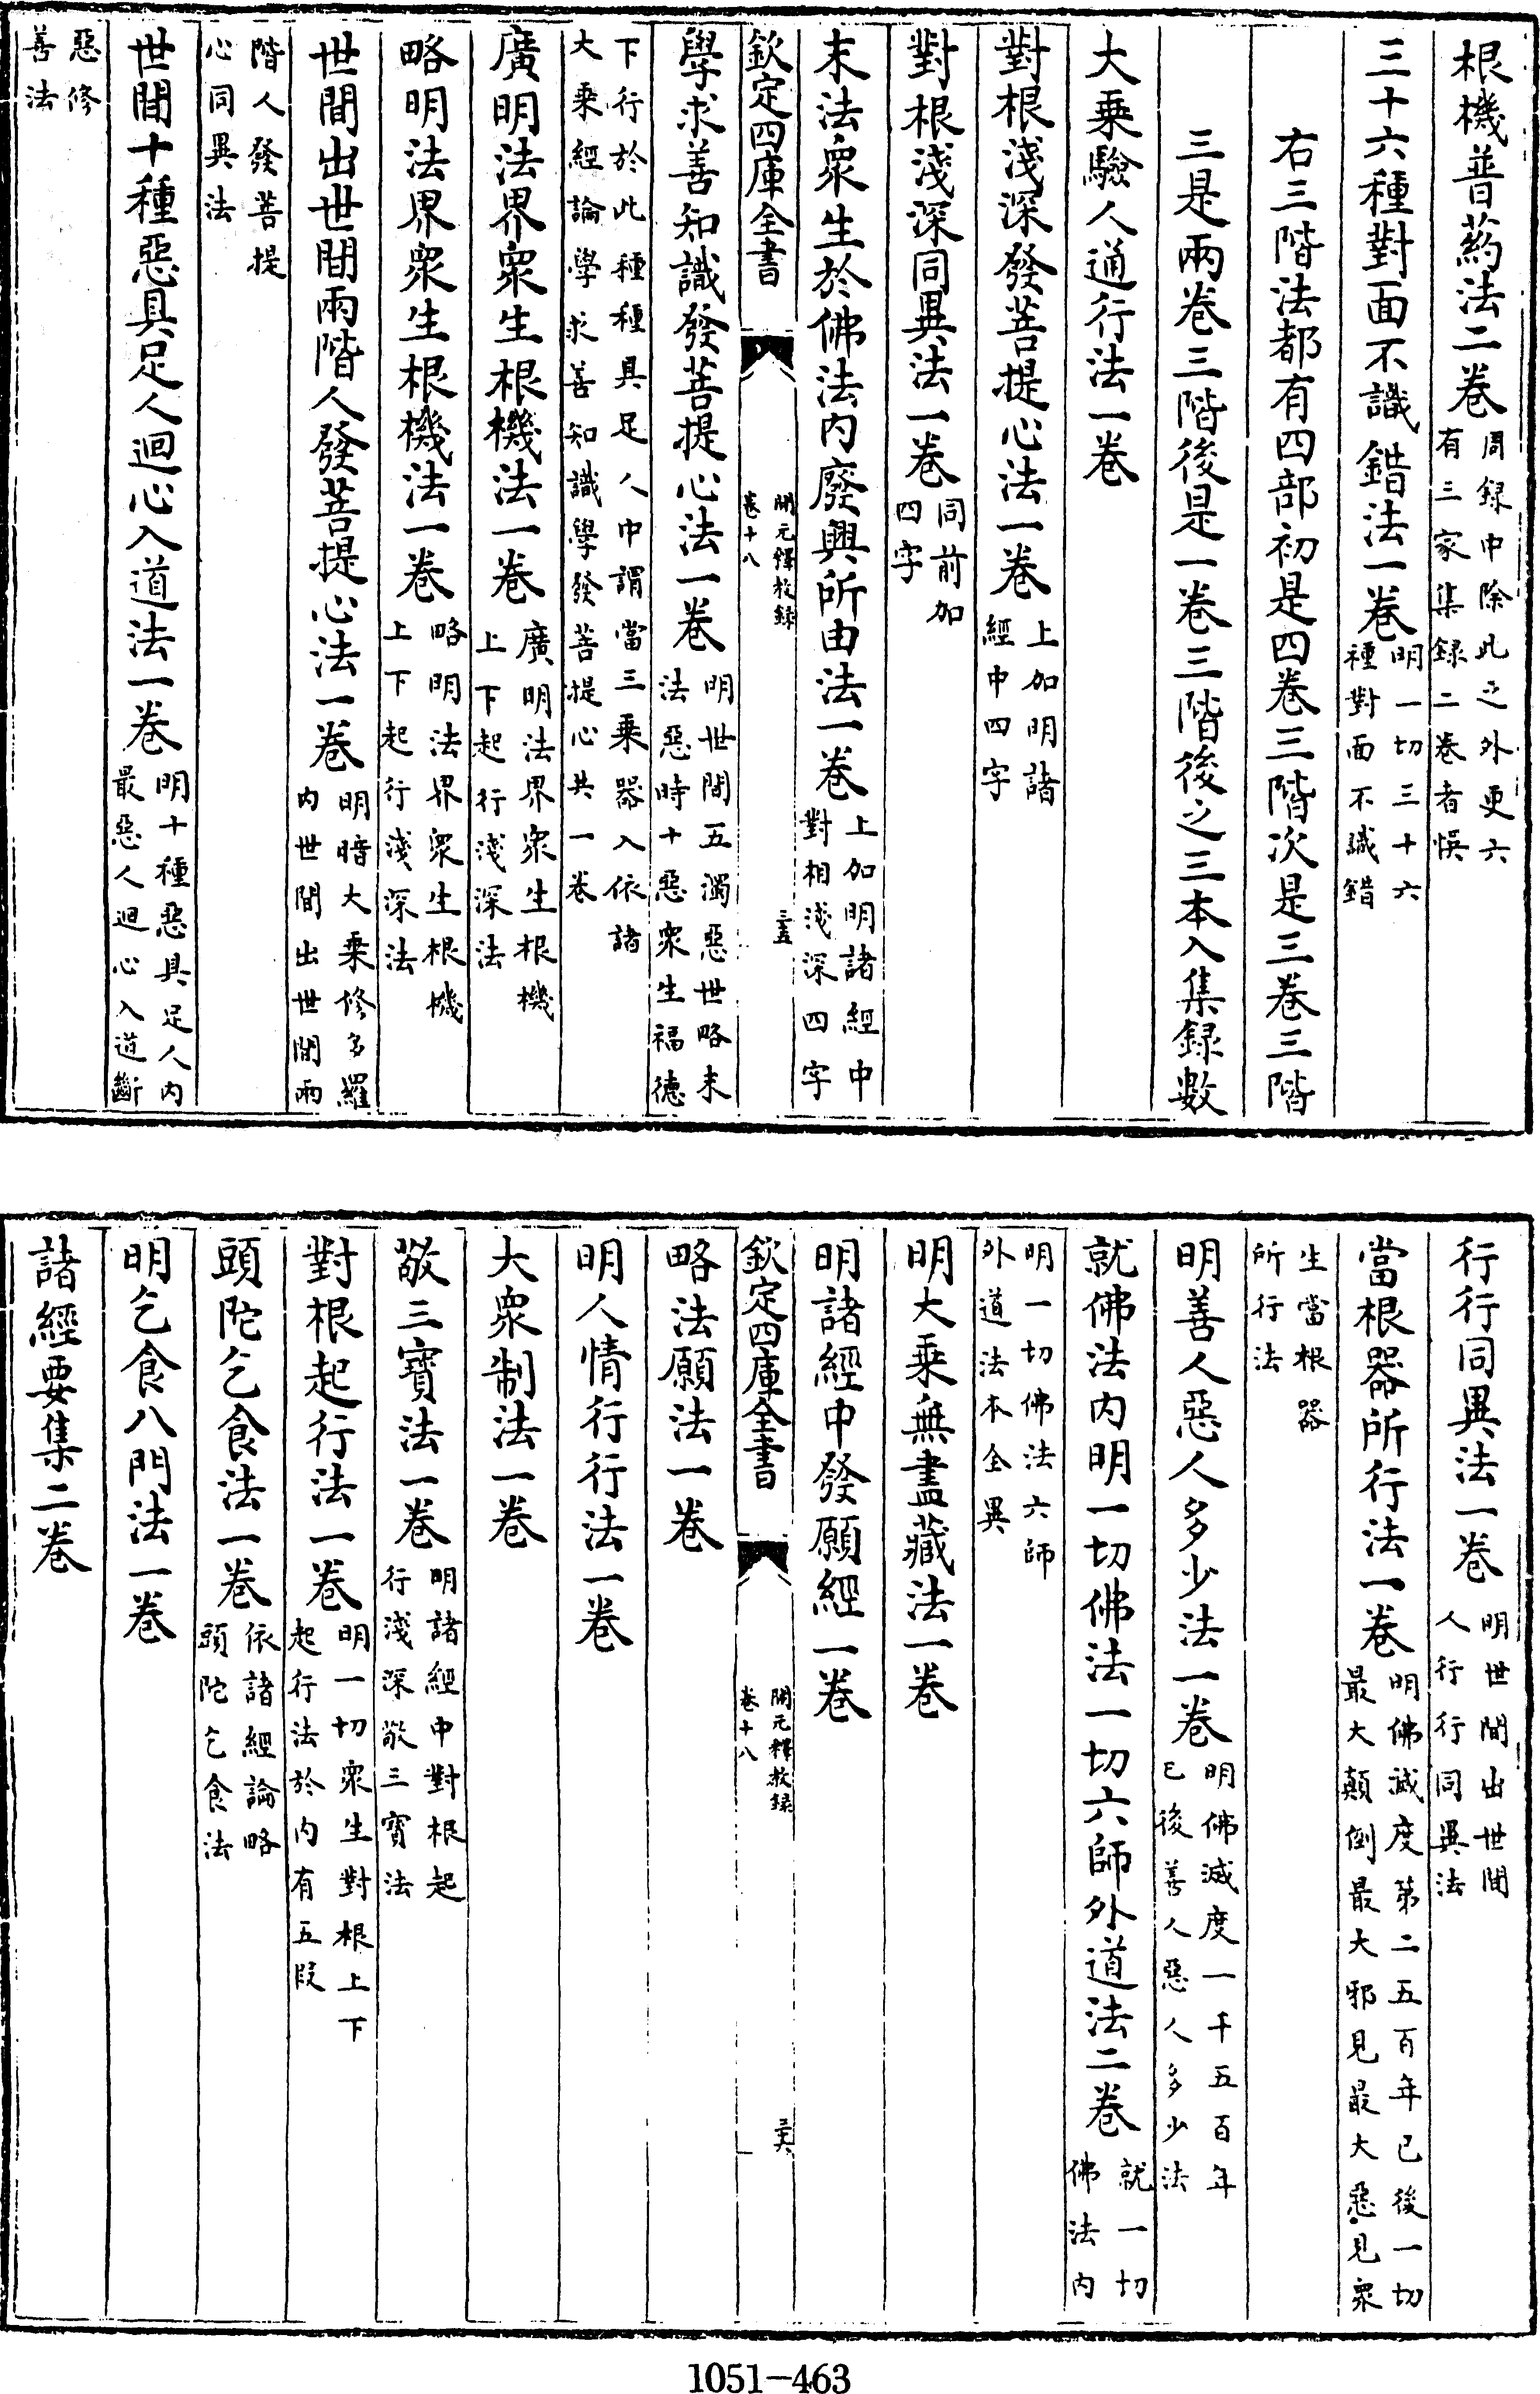 根機普藥法二卷同録中除此之外更六有三家集録二卷者悞
三十六種對面不識錯法一卷明一切三十六種對面不識錯
右三階法都有四部初是四卷三階次是三卷三階
三是兩卷三階後是一卷三階後之三本入集録數
大乗驗人通行法一卷
對根淺深發菩提心法一卷上加明諸經中四字
對根淺深同異法一卷同前加四字
末法衆生於佛法内廢興所由法一卷上加明諸經中對相淺深四字
欽定四庫全書 開元釋教録卷十八 三五
學求善知識發菩提心法一卷明世間五濁惡世略末法惡時十惡衆生福德
下行於此種種具足人中謂當三乗器入依諸大乗經論學求善知識學發菩提心共一卷
廣明法界衆生根機法一卷廣明法界衆生根機上下起行淺深法
略明法界衆生根機法一卷略明法界衆生根機上下起行淺深法
世間出世間兩階人發菩提心法一卷明暗大乗修多羅内世間出世間兩
階人發菩提心同異法
世間十種惡具足人迴心入道法一卷明十種惡具足人内最惡人迴心入道斷
惡修善法
行行同異法一卷明世間出世間人行行同異法
當根器所行法一卷明佛滅度第二五百年已後一切最大顛倒最大邪見最大惡見衆
生當根器所行法
明善人惡人多少法一卷明佛滅度一千五百年已後善人惡人多少法
就佛法内明一切佛法一切六師外道法二卷就一切佛法内
明一切佛法六師外道法本全異
明大乗無盡藏法一卷
明諸經中發願經一卷
欽定四庫全書 開元釋教録卷十八 三六
略法願法一卷
明人情行行法一卷
大衆制法一卷
敬三寳法一卷明諸經中對根起行淺深敬三寳法
對根起行法一卷明一切衆生對根上下起行法於内有五段
頭陀乞食法一卷依諸經論略頭陀乞食法
明乞食八門法一卷
諸經要集二卷
1051-463